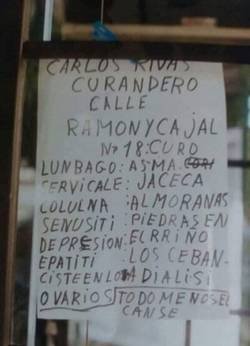 CARLOS RIVAS
CURANDERO
CALLE
RAMONYCAJAL
Nº 18: CURO
LUNBAGO: ASMA
SERVICALE: JACECA
COLULNA: ALMORANAS
SENUSITI: PIEDRAS EN
DEPRESION: EL RRIÑO
EPATITI: LOS CEBAN
CISTEENLOSA DIALISI
OVARIOS TODO MENOS EL
CANSE